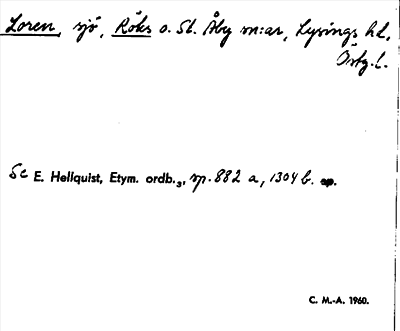 Loren, sjö, Röks o. St. Åby sn:ar, Lysings hd,
Östg.l.
Se E. Hellquist, Etym. ordb.₃, sp. 882 a, 1304 b.
C. M.-A. 1960.